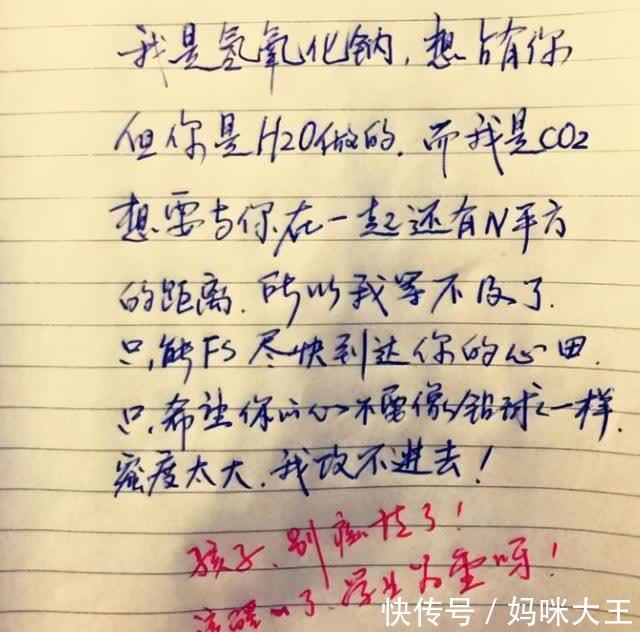 我是氢氧化钠，想占有你
但你是H2O做的，而我是CO2
想要与你在一起还有N平方
的距离，所以我等不及了.
只能FS尽快到达你的心田.
只希望你的心不要像铅球一样，
密度太大，我攻不进去！
孩子，别痴情了！
清醒 了，学业为重呀！
快传号／妈咪大王